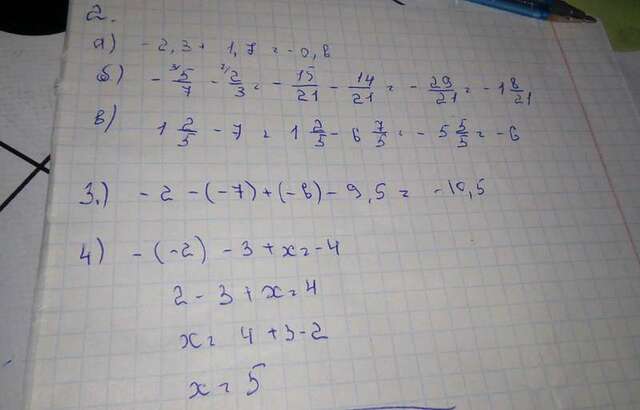 2.
а) - 2,3 + 1,7 = -0,6
б) - ³⁾5/7 - ⁷⁾2/3 = - 15/21 - 14/21 = - 29/21 = - 1 8/21
в) 1 2/5 - 7 = 1 2/5 - 6 7/5 = - 5 5/5 = - 6
3.) - 2 - (-7) + (-6) - 9,5 = -10,5
4) - (-2) - 3 + x = -4
2 - 3 + x = 4
x = 4 + 3 - 2
x = 5